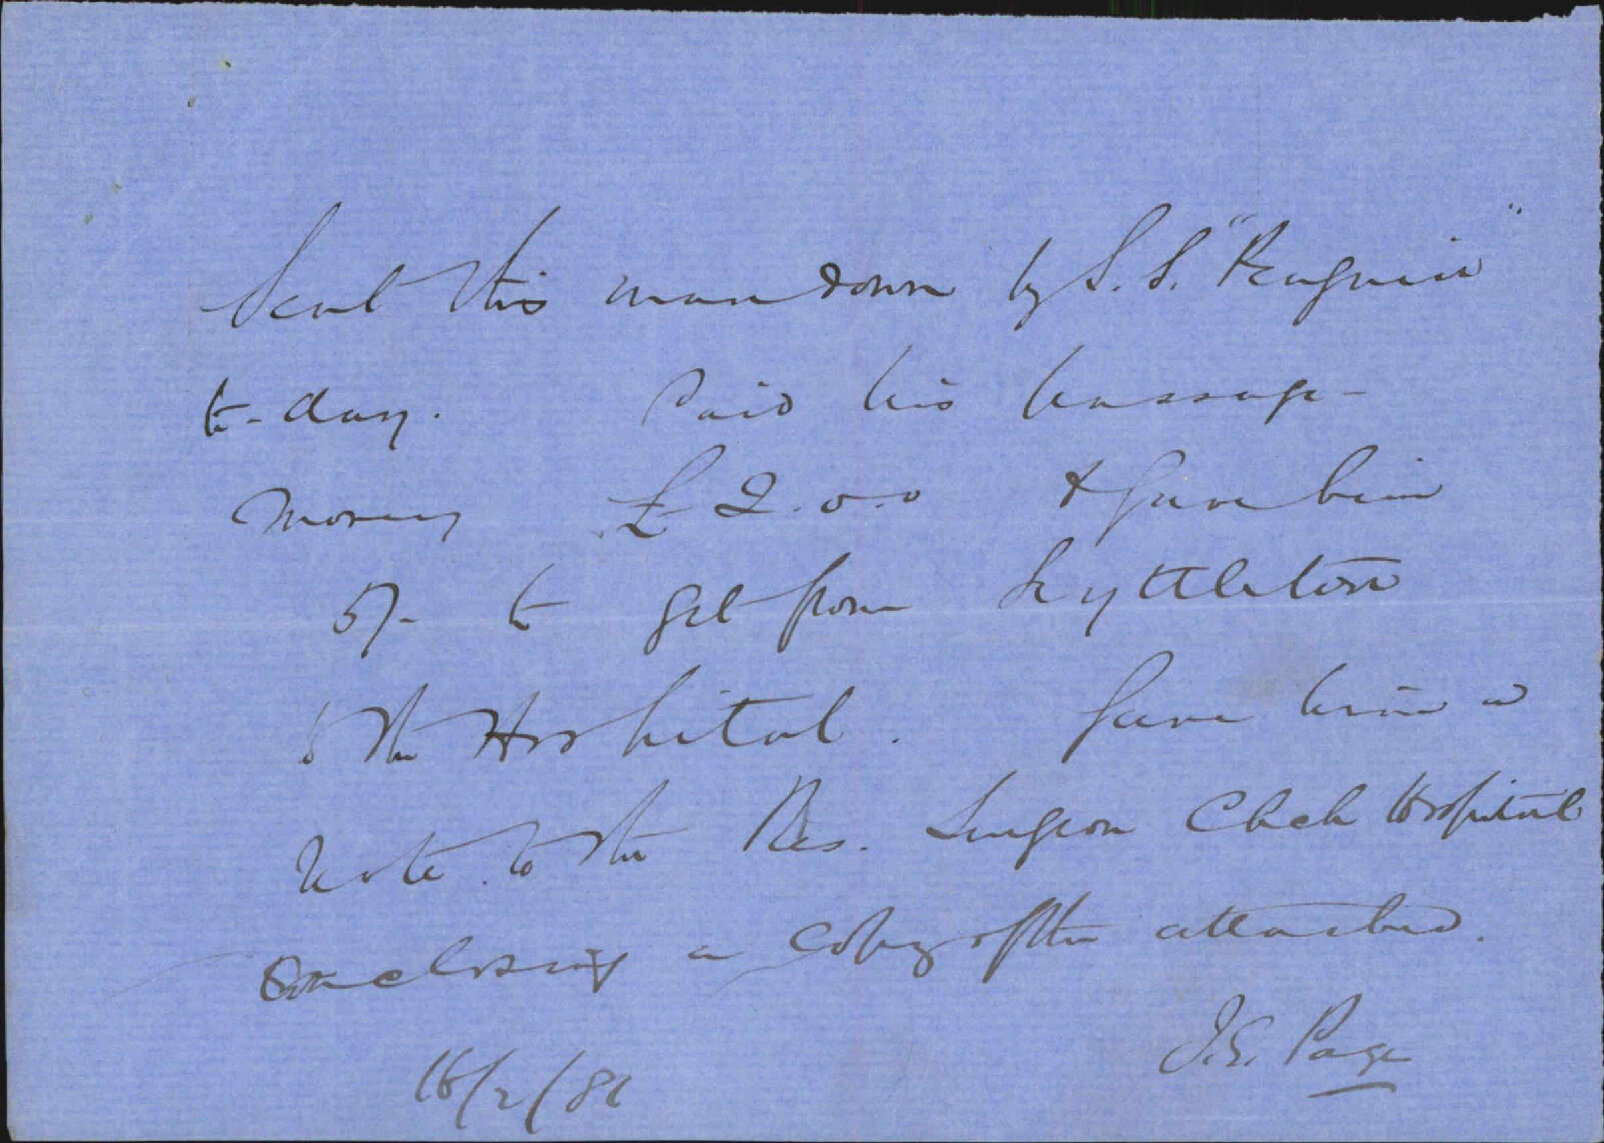 Sent this man down by S.S. "Penguin"
to-day. Paid his passage-
money £2.0.0 & gave him
5/- to get from Lyttleton
to the Hospital. Gave him a
note to the Res. Surgeon Chch Hospital
enclosing a copy of the attached.
Page